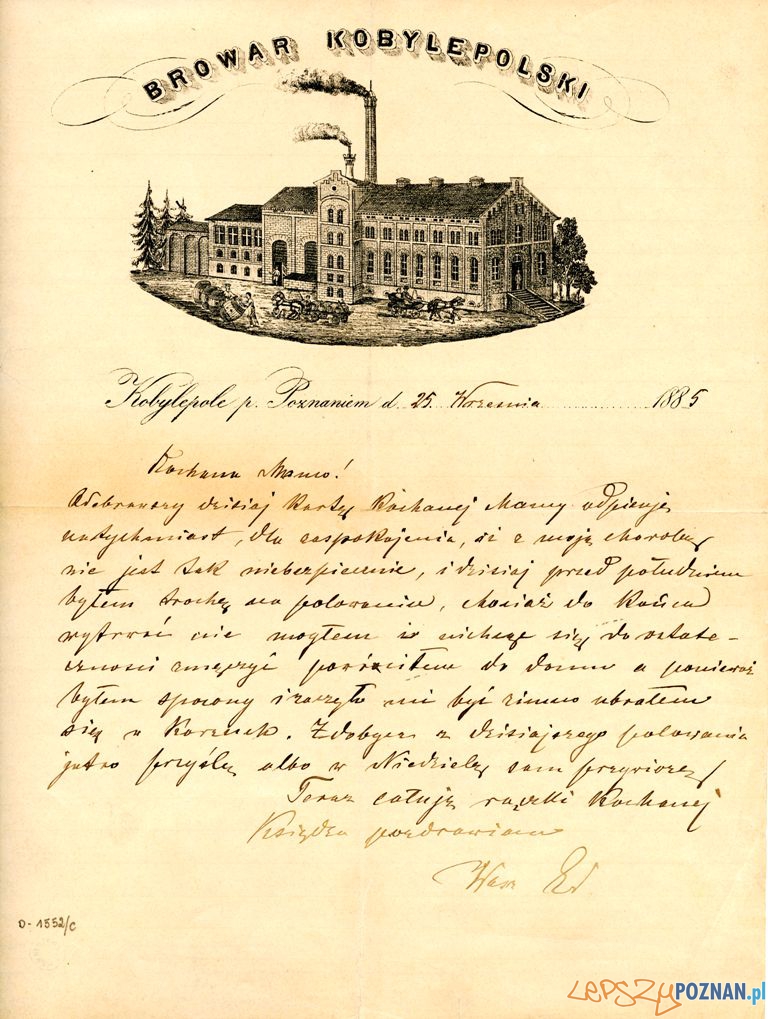 BROWAR KOBYLEPOLSKI
Kobylepole p. Poznaniem d. 25. Września 1885
Kochana Mamo!
Odebrawszy dzisiaj kartę Kochanej Mamy odpisuję
natychmiast, dla zaspokojenia, iż z moją chorobą
nie jest tak niebezpiecznie, i dzisiaj przed południem
byłem trochę na polowaniu, chociaż do końca
wytrwać nie mogłem i niechcąc się do ostate-
czności zmęczyć powróciłem do domu a ponieważ
byłem spocony i zaczęło mi być zimno ubrałem
się w kożuch. Zdobycz z dzisiajszego polowania
jutro przyślę albo w Niedzielę sam przywiozę
Teraz całuję rączki Kochanej
Księdza pozdrawiam
Wasz Ed.
D-1552/C
LEPSZY POZNAN.pl